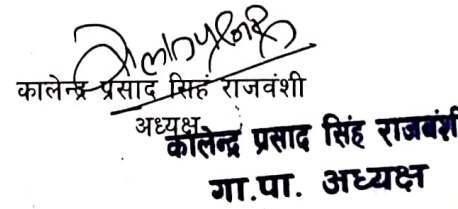 कालेन्द्र प्रसाद सिहं राजवंशी
अध्यक्ष
कालेन्द्र प्रसाद सिंह राजबंशी
गा.पा. अध्यक्ष